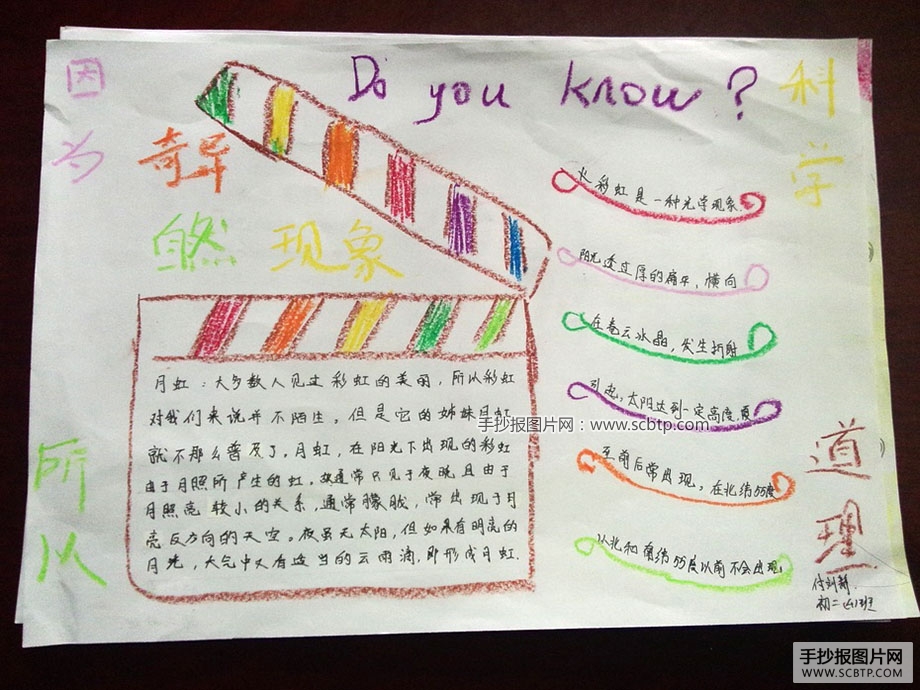 Do you know?
因为
所以
科学
道理
奇异
自然现象
月虹：大多数人见过彩虹的美丽，所以彩虹
对我们来说并不陌生，但是它的姊妹月虹
就不那么普及了。月虹，在阳光下出现的彩虹
由于月照所产生的虹。故通常只见于夜晚，且由于
月照亮较小的关系，通常朦胧，常出现于月
亮反方向的天空。夜虽无太阳，但如果有明亮的
月光，大气中又有适当的云雨滴，即形成月虹.
火彩虹是一种光学现象
阳光透过厚的扁平，横向
在卷云冰晶，发生折射
引起，太阳达到一定高度，夏
至前后常出现，在北纬55度
以北和南纬55度以前不会出现。
初二
班
手抄报图片网：www.scbtp.com
手抄报图片网
WWW.SCBTP.COM